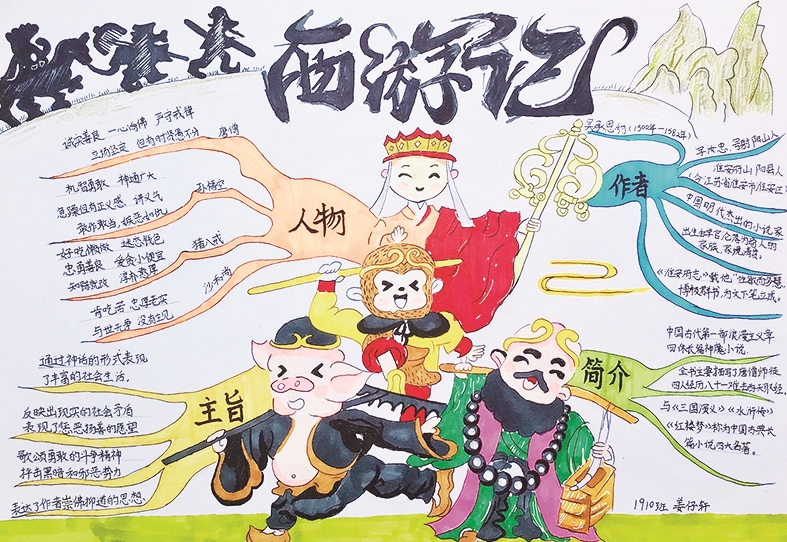 西游记
诚实善良 一心向佛 严守戒律
立场坚定 但有时贤愚不分 唐僧
机智勇敢 神通广大
急躁但有正义感 讲义气 孙悟空
敢作敢当 嫉恶如仇
好吃懒做 迷恋钱色
忠勇善良 爱贪小便宜 猪八戒
知错就改 淳朴憨厚
肯吃苦 忠厚老实 沙和尚
与世无争 没有主见
人物
吴承恩约(1500年-1582年)
字汝忠,号射阳山人
淮安府山阳县人
(今江苏省淮安市淮安区)
中国明代杰出的小说家
出生由学官沦落为商人的
家族,家境清贫。
《淮安府志》载他"性敏而多慧,
博极群书,为文下笔立成。
作者
通过神话的形式表现
了丰富的社会生活。
反映出现实的社会矛盾
表现了惩恶扬善的愿望
歌颂勇敢的斗争精神
抨击黑暗和邪恶势力
表达了作者崇佛抑道的思想.
主旨
中国古代第一部浪漫主义章
回体长篇神魔小说.
全书主要描写了唐僧师徒
四人经历八十一难去西天取经.
与《三国演义》《水浒传》
《红楼梦》称为中国古典长
篇小说四大名著。
简介
1910班 姜仔轩